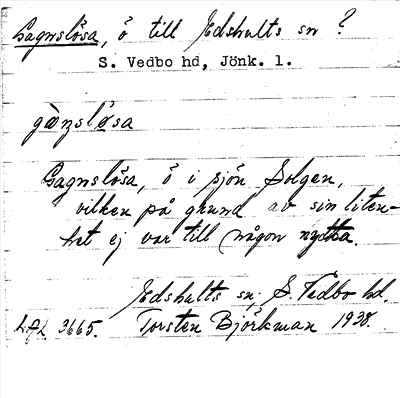 Gagnslösa, ö till Edshults sn ?
S. Vedbo hd, Jönk. l.
gàŋslø̀sa
Gagnslösa, ö i sjön Solgen,
vilken på grund av sin liten-
het ej var till någon nytta.
Edshults sn, S. Vedbo hd.
LAL 3665. Torsten Björkman 1938.